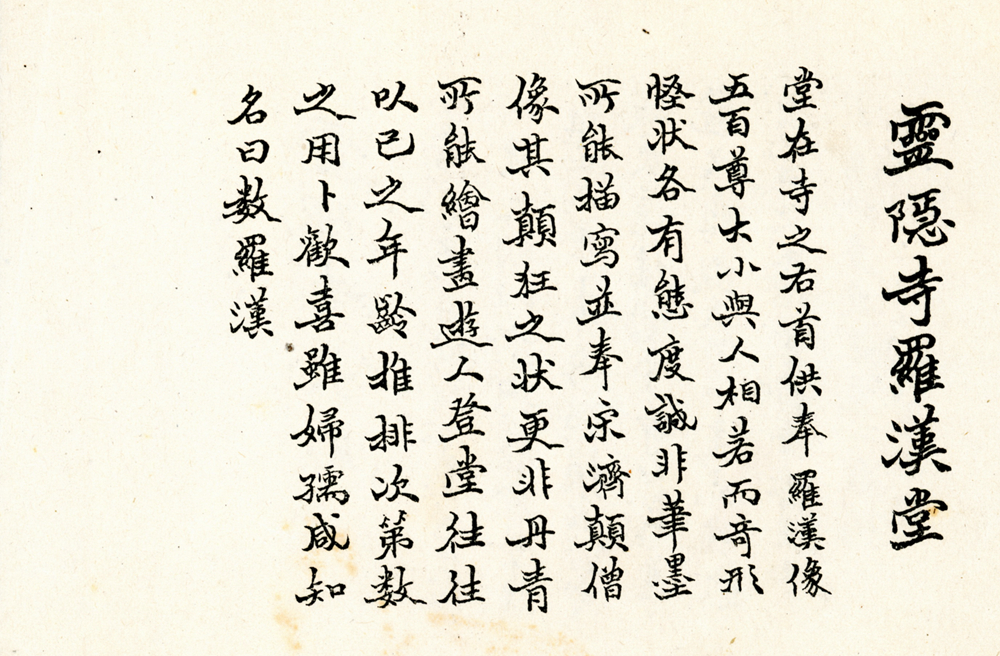 靈隱寺羅漢堂
堂在寺之右首供奉羅漢像
五百尊大小與人相若而奇形
怪狀各有態度誠非華墨
所能描寫並奉宋濟顛僧
像其顛狂之狀更非丹青
所能繪畫遊人登堂往往
以己之年齡推排次第数
之用卜歡喜雖婦孺咸知
名曰数羅漢